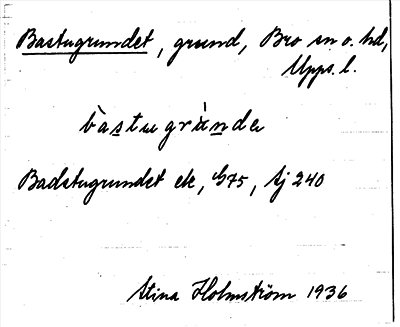 Bastugrundet, grund, Bro sn o. hd,
Upps. l.
bàstugrúnde
Badstugrundet ek, G75, Sj 240
Stina Holmström 1936